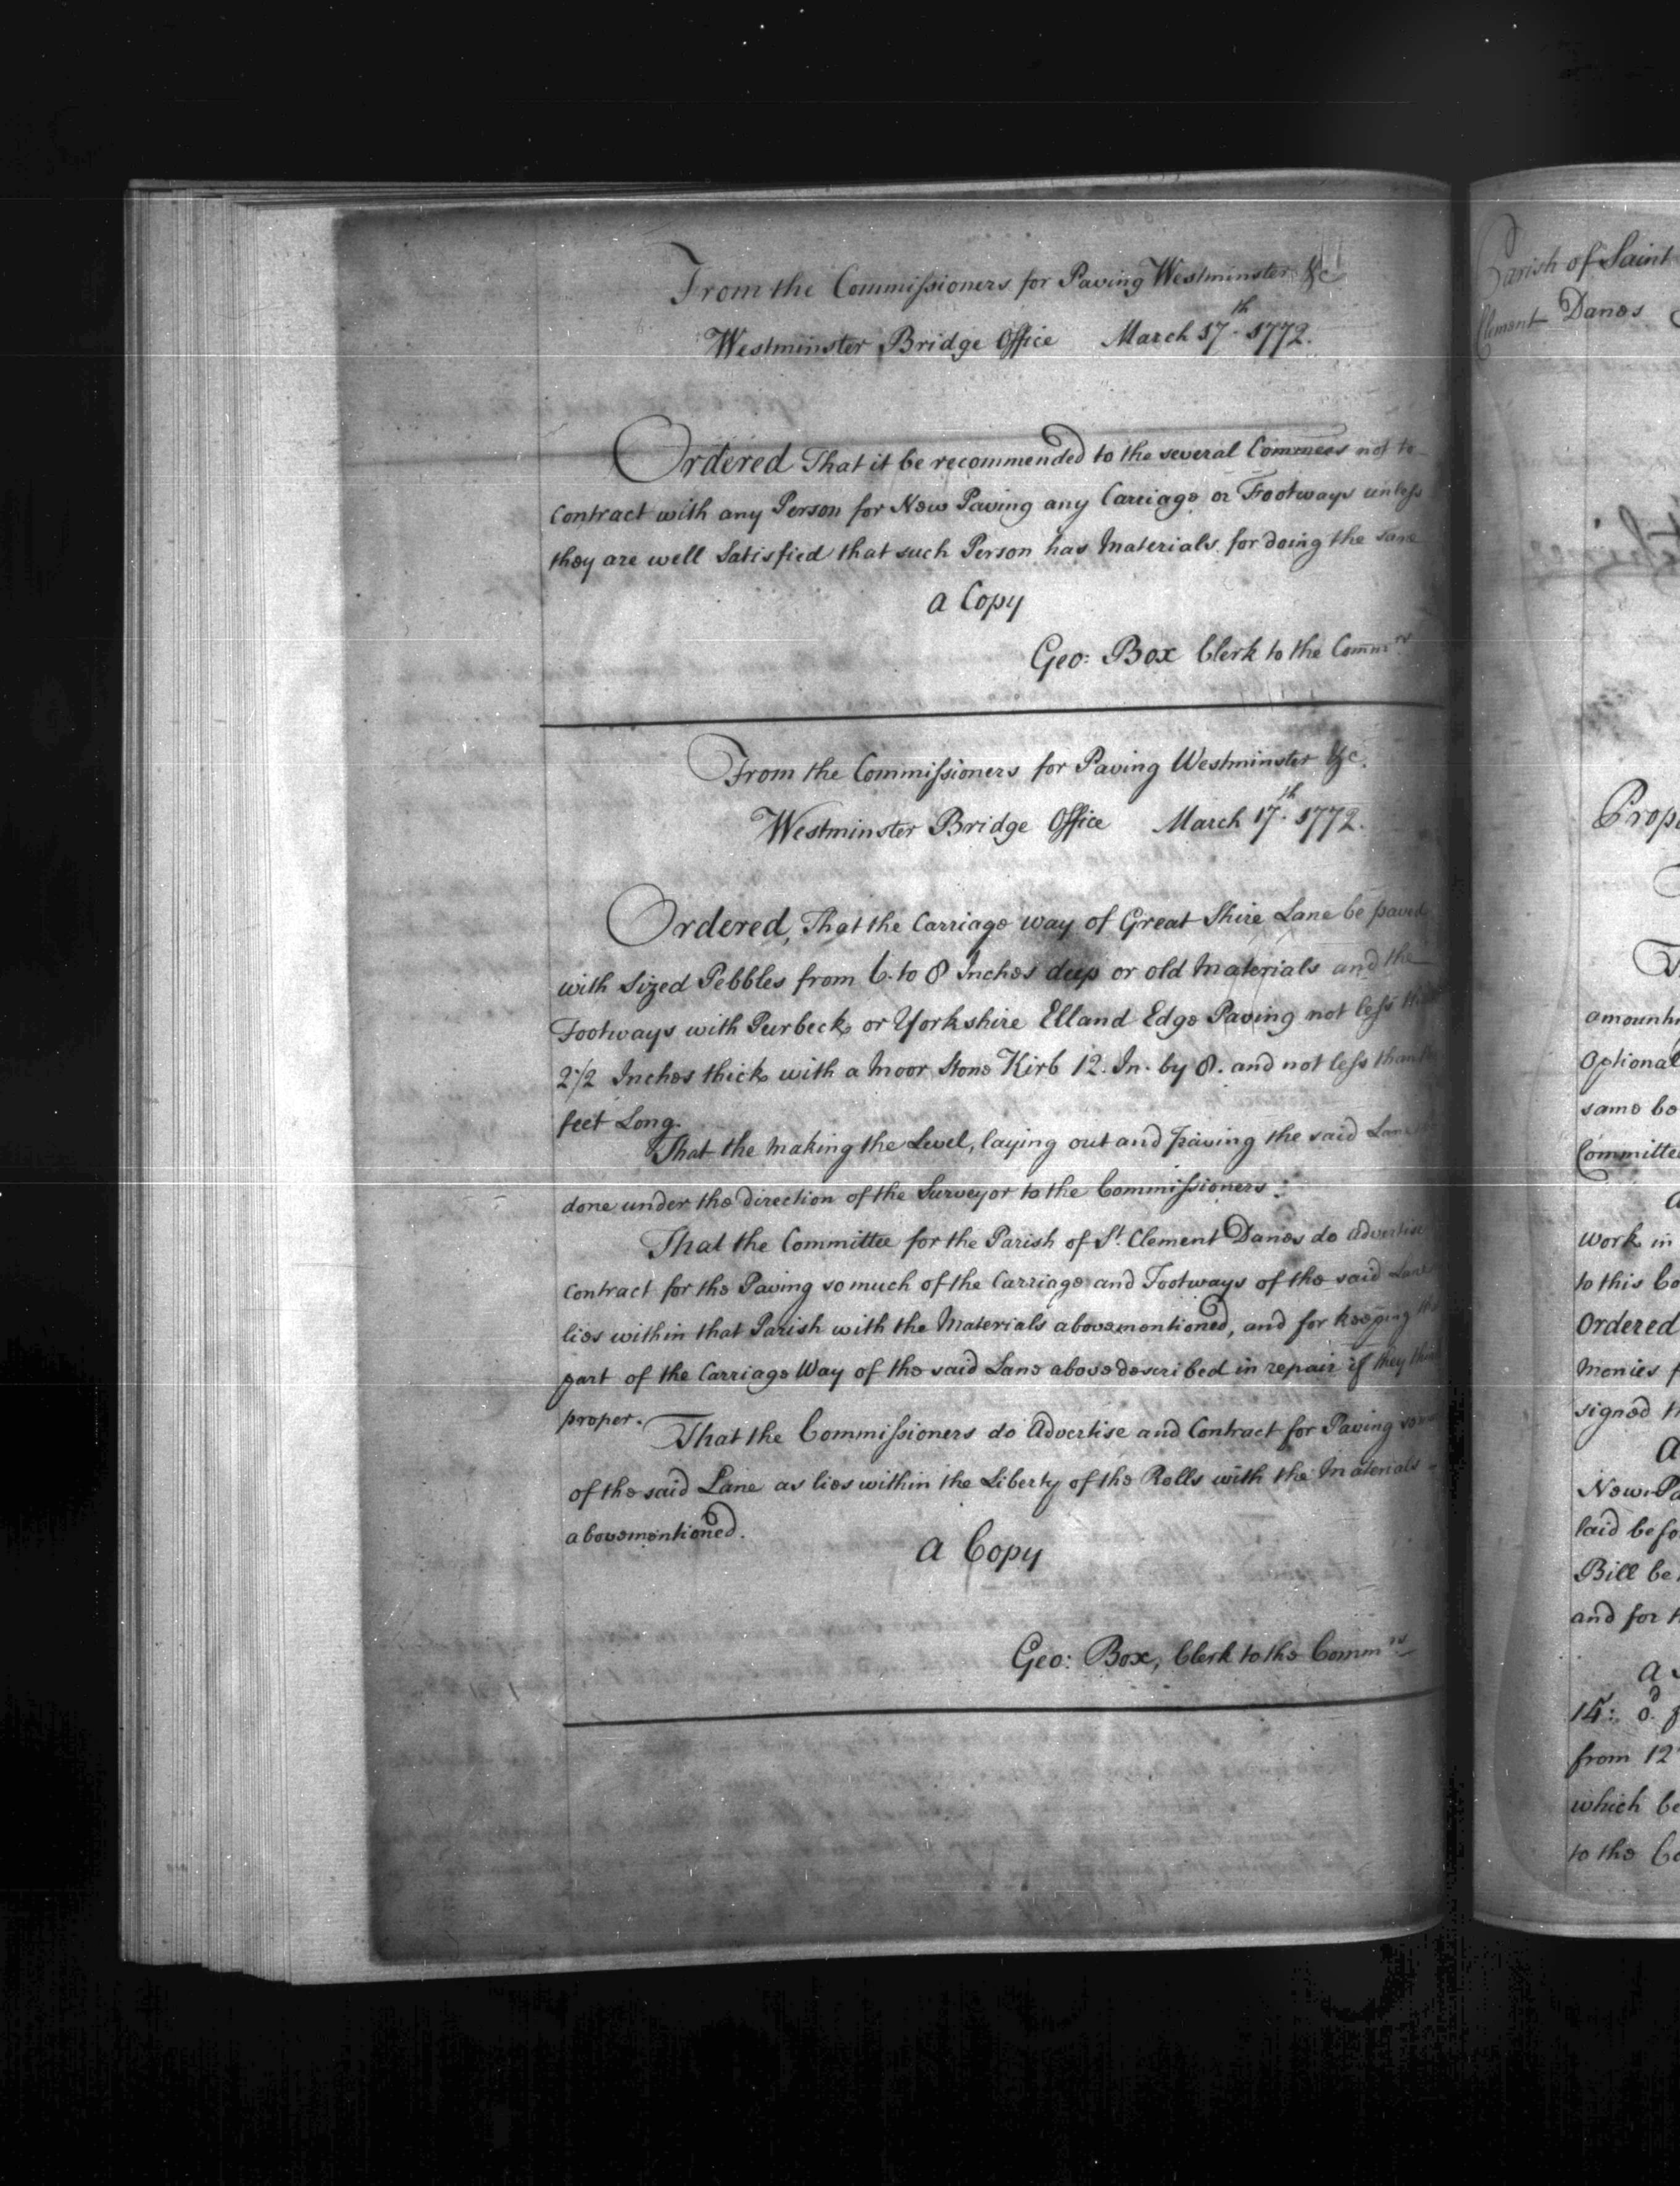 From the Commissioners for Paving Westminster &c
Westminster Bridge Office March 17th 1772.
Ordered That it be recommended to the several Commees not to
contract with any Person for New Paving any Carriage or Footways unless
they are well Satisfied that such Person has Materials for doing the same
a Copy
Geo: Box Clerk to the Commrs
From the Commissioners for Paving Westminster &c.
Westminster Bridge Office March 17th 1772.
Ordered, That the Carriage way of Great Shire Lane be paved
with Sized Pebbles from 6. to 8 Inches deep or old Materials and the
Footways with Purbeck or Yorkshire Elland Edge Paving not less than
2 1/2 Inches thick with a Moor Stone Kirb 12. In. by 8. and not less than
feet Long.
That the making the Level, laying out and paving the said Lane
done under the direction of the Surveyor to the Commissioners.
That the Committee for the Parish of St. Clement Danes do advertise
contract for the Paving so much of the Carriage and Footways of the said Lane
lies within that Parish with the Materials abovementioned, and for keeping
part of the Carriage Way of the said Lane above described in repair if they think
proper.
That the Commissioners do Advertise and Contract for Paving so
of the said Lane as lies within the Liberty of the Rolls with the Materials
abovementioned.
a Copy
Geo: Box, Clerk to the Commrs
Parish of Saint
Clement Danes
Prop
amount
Optional
same be
Committee
work in
to this Co
Ordered
Monies f
signed
New Pa
laid befo
Bill be
and for t
a
15: 0d. f
from 12
which be
to the Co